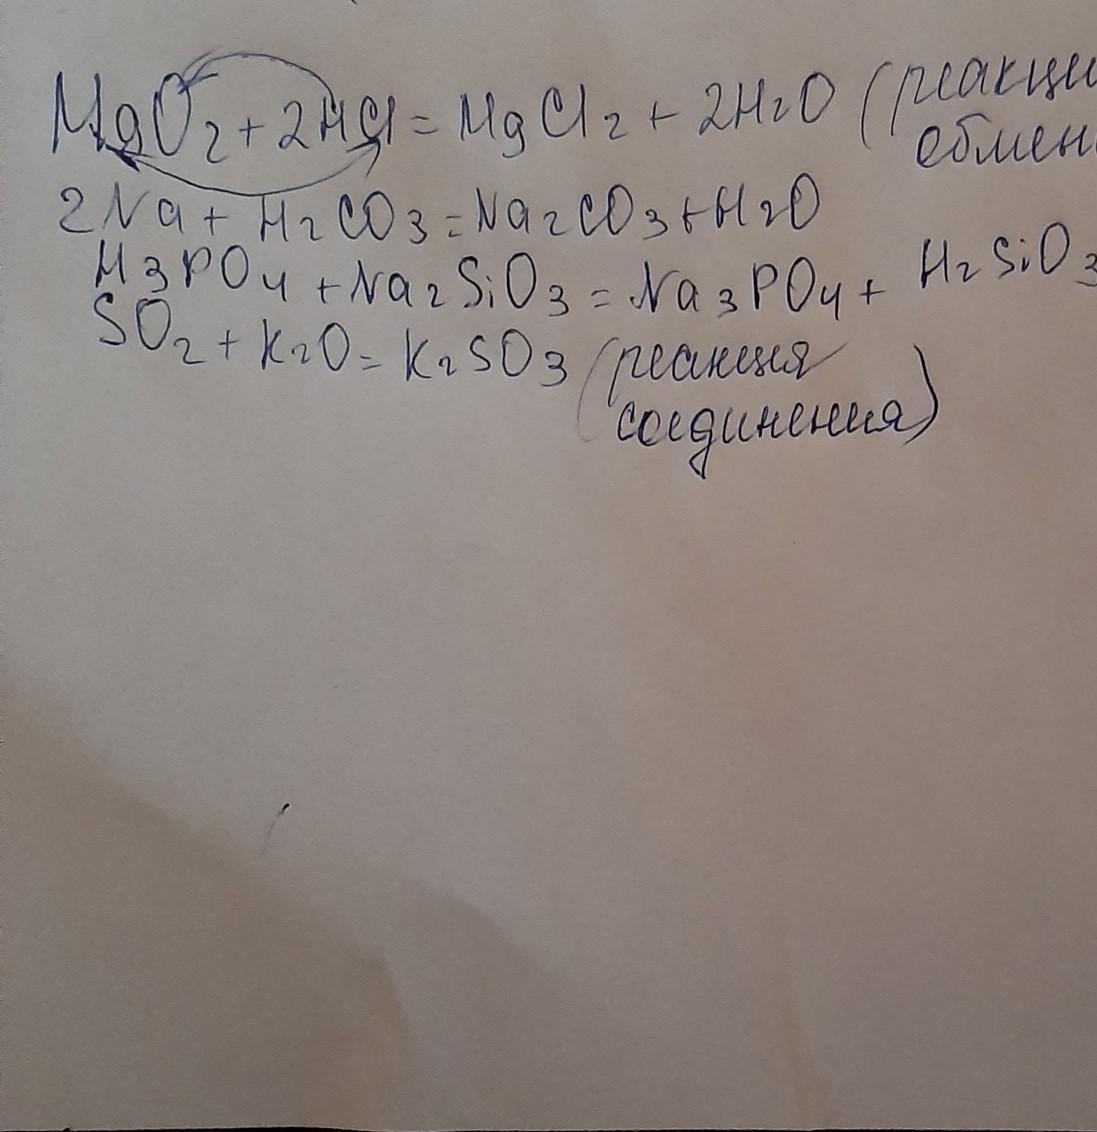 MgO2 + 2HCl = MgCl2 + 2H2O (реакци
обмен
2Na + H2CO3 = Na2CO3 + H2O
H3PO4 + Na2SiO3 = Na3PO4 + H2SiO3
SO2 + K2O = K2SO3 (реакция
соединения)